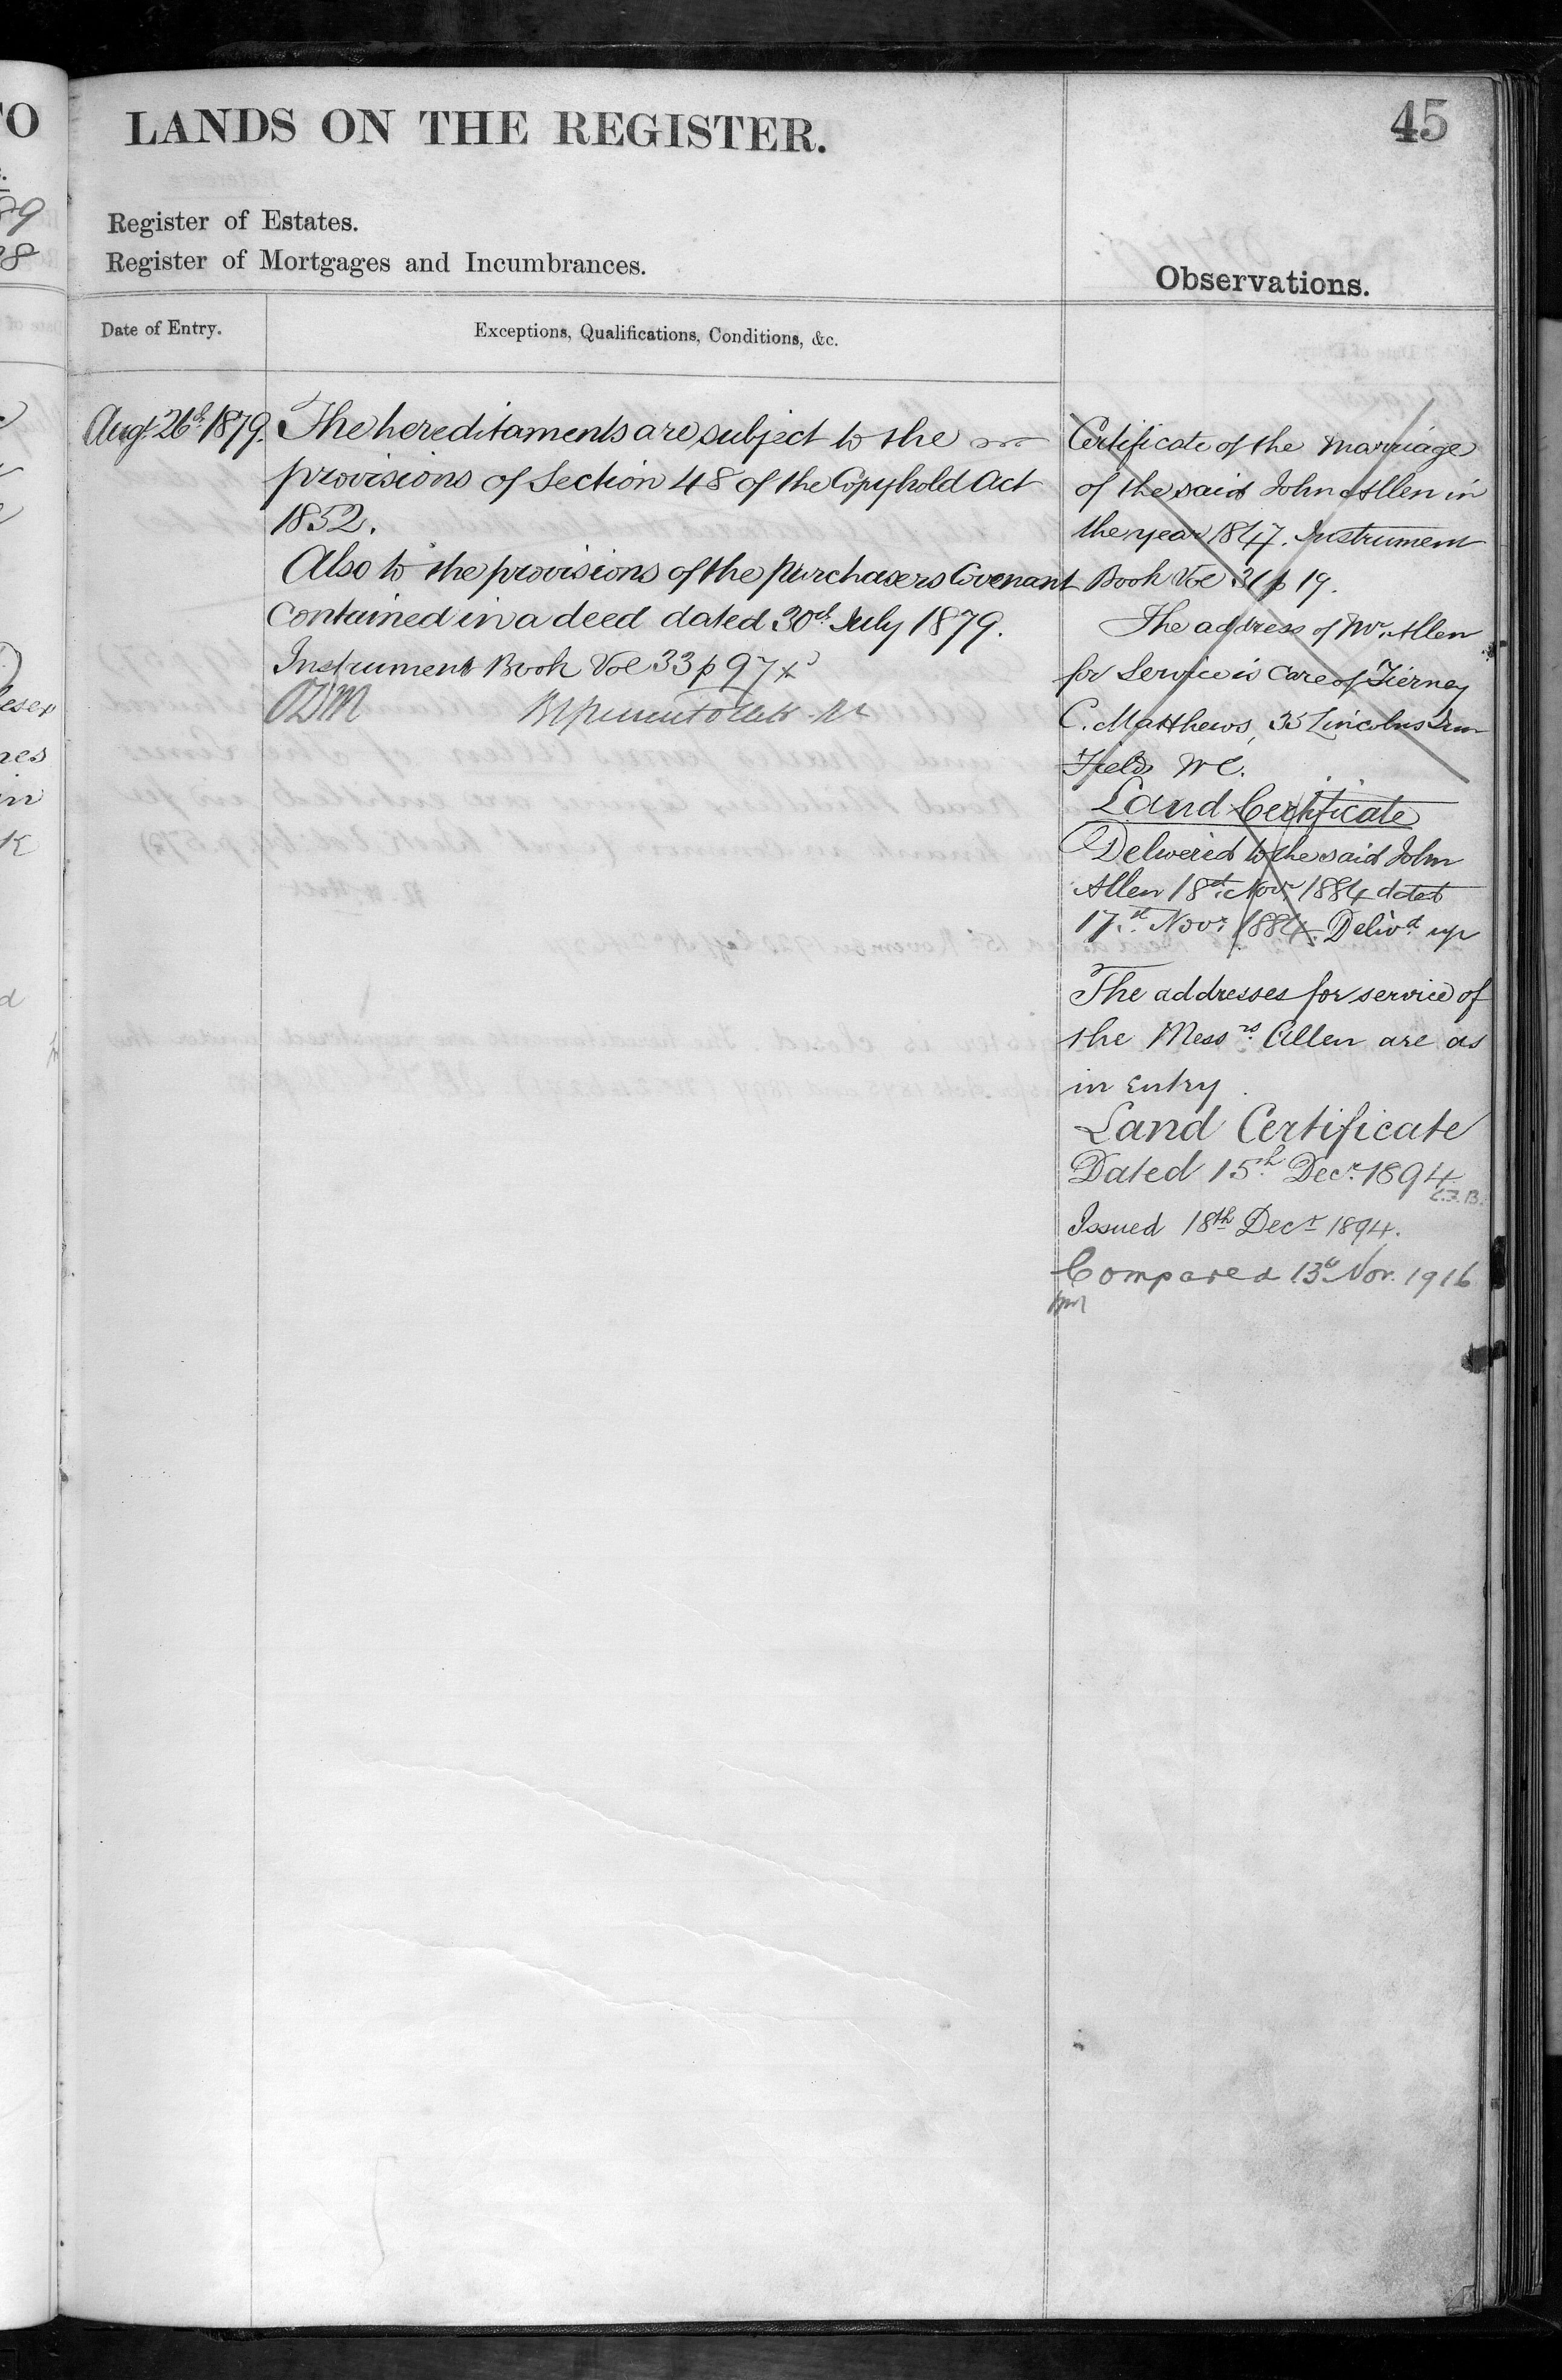 LANDS ON THE REGISTER.
45
Register of Estates.
Register of Mortgages and Incumbrances.
Observations.
Date of Entry.
Exceptions, Qualifications, Conditions, &c.
Augt. 26th 1879.
The hereditaments are subject to the
provisions of Section 48 of the Copyhold Act
1852.
Also to the provisions of the Purchasers Covenant
contained in a deed dated 30th July 1879.
Instrument Book Vol 33 p 97
Certificate of the Marriage
of the said John Allen in
the year 1847. Instrument
Book Vol 31 p 19.
The address of Mr. Allen
for Service is care of Tierney
C. Matthews, 35 Lincolns Inn
Fields W C.
Land Certificate
Delivered to the said John
Allen 18th Novr 1884 dated
17th Novr 1884. Delivd up
The addresses for service of
the Messrs Allen are as
in Entry.
Land Certificate
Dated 15th Decr. 1894
C.J.B.
Issued 18th Decr 1894.
Compared 13th Nov. 1916